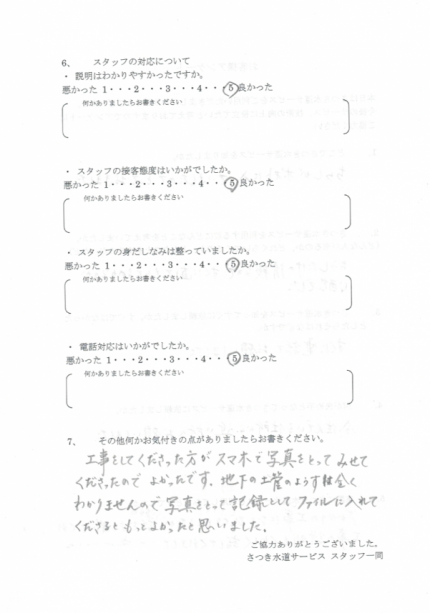 6、 スタッフの対応について
・ 説明はわかりやすかったですか。
悪かった 1・・・2・・・3・・・4・・・5良かった
何かありましたらお書きください
・ スタッフの接客態度はいかがでしたか。
悪かった 1・・・2・・・3・・・4・・・5良かった
何かありましたらお書きください
・ スタッフの身だしなみは整っていましたか。
悪かった 1・・・2・・・3・・・4・・・5良かった
何かありましたらお書きください
・ 電話対応はいかがでしたか。
悪かった 1・・・2・・・3・・・4・・・5良かった
何かありましたらお書きください
7、 その他何かお気付きの点がありましたらお書きください。
工事をしてくださった方がスマホで写真をとってみせて
くださったのでよかったです。地下の土管のようすは全く
わかりませんので写真をとって記録としてファイルに入れて
くださるともっとよかったと思いました。
ご協力ありがとうございました。
さつき水道サービス スタッフ一同